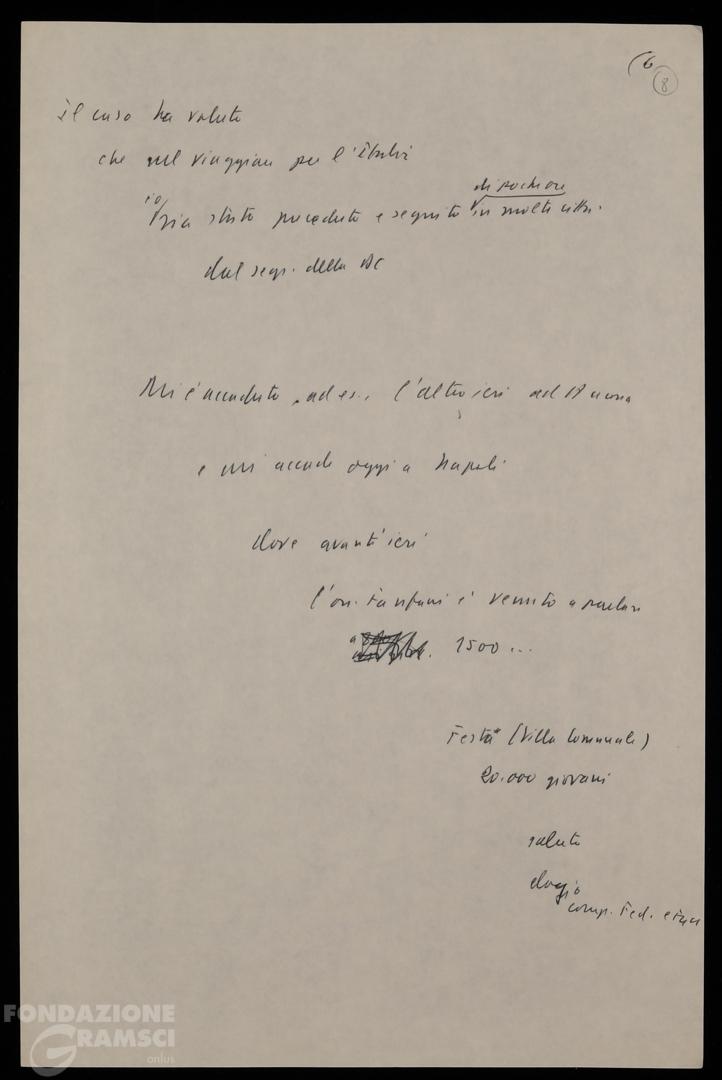 (6
8
il caso ha voluto
che nel viaggiare per l'Italia
io sia stato preceduto e seguito di poche ore in molte città
dal segr. della DC
Mi è accaduto, ad es., l'altro ieri ad Ancona
e mi accade oggi a Napoli
dove avant'ieri
l'on. Fanfani è venuto a parlare
a 1500...
Festa (Villa Comunale)
20.000 giovani
saluto
elogio
comp. Fed. e
FONDAZIONE
GRAMSCI
onlus